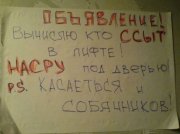 ОБЪЯВЛЕНИЕ!
Вычислю кто ССЫТ
в лифте!
НАСРУ под дверью
P.S. КАСАЕТЬСЯ и
СОБАЧНИКОВ!